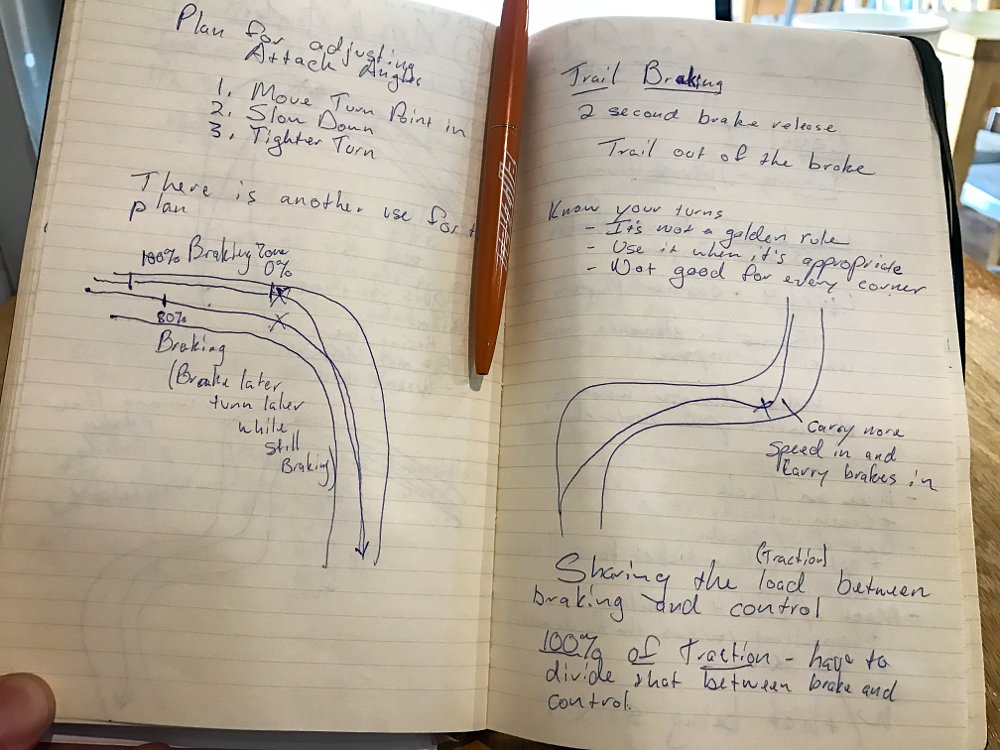 Plan for adjusting
Attack Angles
1. Move Turn Point in
2. Slow Down
3. Tighter Turn
There is another use for
plan
100% Brakting Zone
0%
80%
Braking
(Brake later
turn later
while
still
Braking)
Trail Braking
2 second brake release
Trail out of the brake
Know your turns
- It's not a golden rule
- Use it when it's appropriate
- Not good for every corner
Carry more
Speed in and
Carry brakes in
(Traction)
Sharing the load between
braking and control
100% of Traction - have to
divide that between brake and
control.